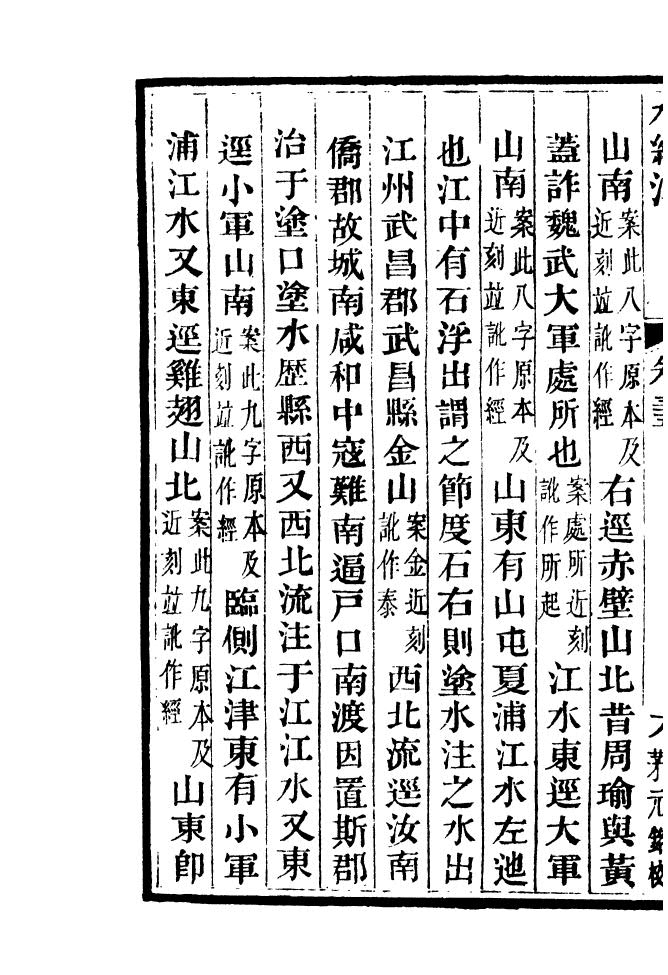 水經注 卷三
山南案此八字原本及近刻並訛作經右逕赤壁山北昔周瑜與黃
蓋詐魏武大軍處所也案處所近刻訛作所起江水東逕大軍
山南案此八字原本及近刻並訛作經山東有山屯夏浦江水左迆
也江中有石浮出謂之節度石右則塗水注之水出
江州武昌郡武昌縣金山案金近刻訛作泰西北流逕汝南
僑郡故城南咸和中寇難南逼戶口南渡因置斯郡
治于塗口塗水歷縣西又西北流注于江江水又東
逕小軍山南案此九字原本及近刻並訛作經臨側江津東有小軍
浦江水又東逕雞翅山北案此九字原本及近刻並訛作經山東卽